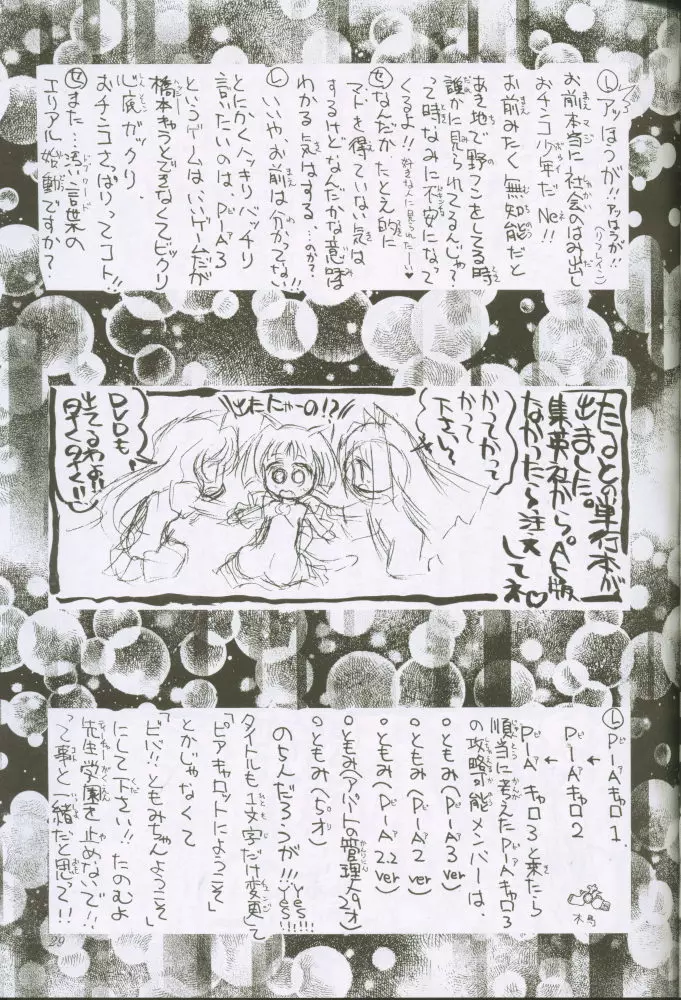 Ⓛアッはうが!! アッはうが!!
(リフレイン)
お前本当に社会のはみ出し
おチンコ少年だNe!!
お前みたく無知能だと
あき地で野ぐそしてる時
誰かに見られてるんじゃ?
って時なみに不安になって
くるよ!! 好きな人に見られたー♥
Ⓢなんだか、たとえ的に
マトを得ていない気は
するけどなんだかな意味は
わかる気はする…のか?
Ⓛいいや、お前は分かってない
とにかくハッキリバッチリ
言いたいのは、P−A3
というゲームは、いいゲームだが
橋本キャラとできなくてビックリ
心底ガックリ、
おチンコさっぱりってコト!!
Ⓢまた…汚い言葉の
エリアル始動ですか?
たるとの単行本が
出ました。
集英社から。A5版
なかったら注文
してネ♡
かってかって
かって
下さい〜
出たにゃーの!?
DVDも
出てるわよ!!
早く早く!!
ⓁP−Aキャロ1.
↓
P−Aキャロ2
↓
P−Aキャロ3と来たら
順当に考えたP−Aキャロ3
の攻略可能メンバーは、
○ともみ(P−A3 ver)
○ともみ(P−A2 ver)
○ともみ(P−A2.2 ver)
○ともみ(アパートの管理人29才)
○ともみ(5才)
のちんだろうが!!! yes!!! yes!!!
タイトルも1文字だけ変更して
「ピアキャロットにようこそ」
とかじゃなくて
「ピバ!!ともみちゃんようこそ」
にして下さい!!たのむよ
先生、学園を止めないで!!
って事と一緒だと思って!!
29